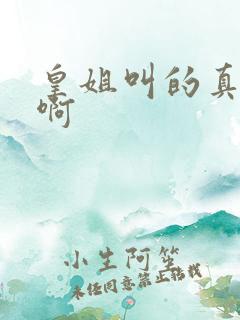 皇姐叫的真
啊
小生阿笙
未经同意禁止转载